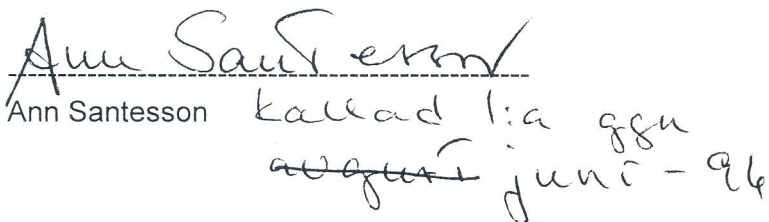 Ann Santesson
Ann Santesson kallad 1:a ggn
august juni - 96